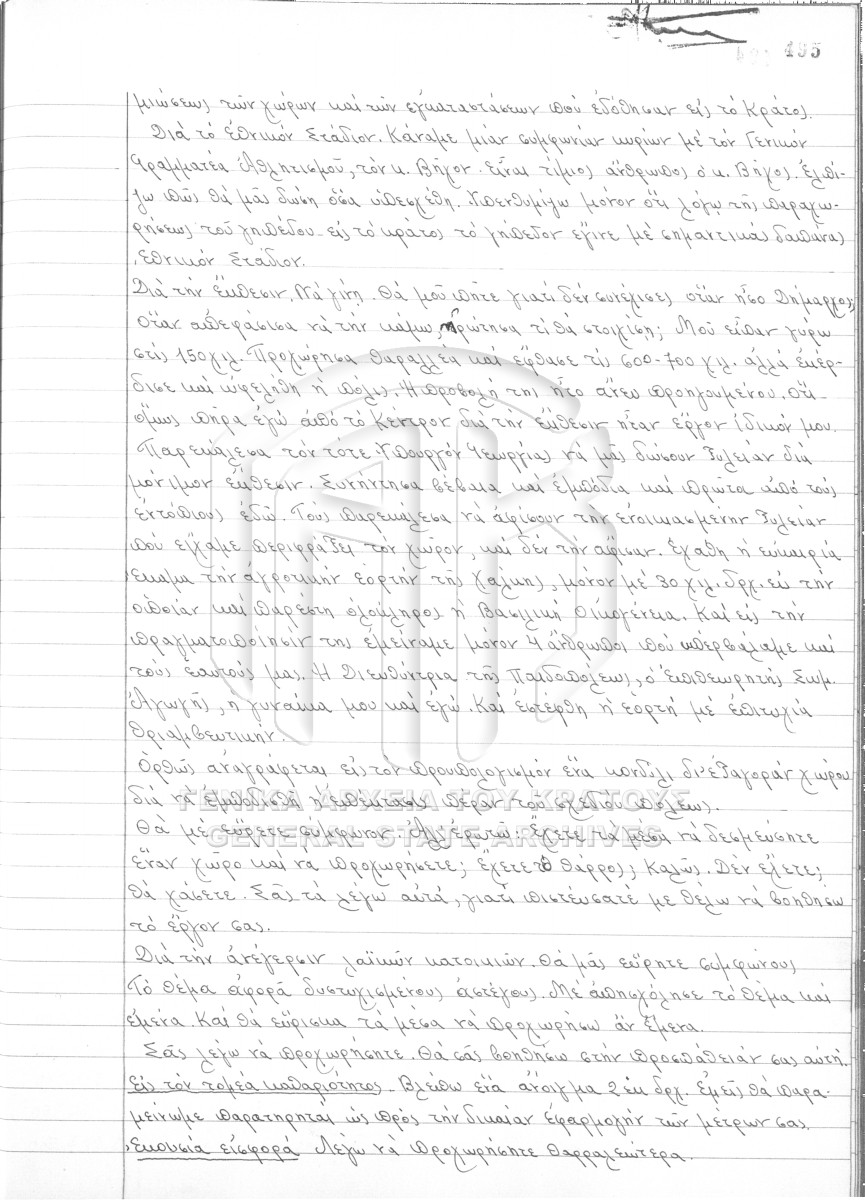 495
μιώσεως τῶν χώρων καί τῶν ἐγκαταστάσεων πού ἐδόθησαν εἰς τό Κράτος.
Διά τό Ἐθνικόν Στάδιον. Κάναμε μίαν συμφωνίαν κυρίων μέ τόν Γενικόν
Γραμματέα Ἀθλητισμοῦ, τόν κ. Βῆχον. Εἶναι τίμιος ἄνθρωπος ὁ κ. Βῆχος. Ἐλπί-
ζω πῶς θά μᾶς δώση ὅσα ὑπεσχέθη. Ὑπενθυμίζω μόνον ὅτι λόγῳ τῆς παραχω-
ρήσεως τοῦ γηπέδου εἰς τό κράτος τό γήπεδον ἔγινε μέ σημαντικάς δαπάνας
Ἐθνικόν Στάδιον.
Διά τήν ἔκθεσιν. Νά γίνη. Θά μοῦ πῆτε γιατί δέν συνέχισες ὅταν ἤσο Δήμαρχος;
Ὅταν ἀπεφάσισα νά τήν κάμω, ἠρώτησα τί θά στοιχίση; Μοῦ εἶπαν γύρω
στίς 150 χιλ. Προχώρησα θαραλλέα καί ἔφθασε τίς 600-700 χιλ. ἀλλά ἐκέρ-
δισε καί ὠφελήθη ἡ πόλις. Ἡ προβολή της ἦτο ἄνευ προηγουμένου. Ὅτι
ὅμως πῆρα ἐγώ ἀπό τό Κέντρον διά τήν ἔκθεσιν ἦταν ἔργον ἰδικόν μου.
Παρεκάλεσα τόν τότε Ὑπουργόν Γεωργίας νά μᾶς δώσουν ξυλείαν διά
μόνιμον ἔκθεσιν. Συνήντησα βέβαια καί ἐμπόδια καί πρῶτα ἀπό τούς
ἐντόπιους ἐδῶ. Τούς παρεκάλεσα νά ἀφίσουν τήν ἐνοικιασμένην ξυλείαν
πού εἴχαμε περιφράξει τόν χῶρον, καί δέν τήν ἄφισαν. Ἐχάθη ἡ εὐκαιρία
Ἔκαμα τήν ἀγροτικήν ἑορτήν τῆς Χάλκης, μόνον μέ 30 χιλ. δρχ. εἰς τήν
ὁποίαν καί παρέστη ὁλόκληρος ἡ Βασιλική Οἰκογένεια. Καί εἰς τήν
πραγματοποίησίν της ἐμείναμε μόνον 4 ἄνθρωποι πού ὑπερβάλαμε καί
τούς ἑαυτούς μας. Ἡ Διευθύντρια τῆς Παιδοπόλεως, ὁ Ἐπιθεωρητής Σωμ.
Ἀγωγῆς, ἡ γυναίκα μου καί ἐγώ. Καί ἐστέφθη ἡ ἑορτή μέ ἐπιτυχία
θριαμβευτικήν.
Ὀρθῶς ἀναγράφεται εἰς τόν προϋπολογισμόν ἕνα κονδύλι δι' ἐξαγοράν χώρου
διά νά ἐμποδισθῆ ἡ ἐπέκτασις πέραν τοῦ σχεδίου πόλεως.
Θά μέ εὕρετε σύμφωνον. Ἀλλ' ἐρωτῶ: Ἔχετε τά μέσα νά δεσμεύσητε
ἕναν χῶρο καί νά προχωρήσετε; ἔχετε τό θάρρος; Καλῶς. Δέν ἔχετε;
Θά χάσετε. Σᾶς τά λέγω αὐτά, γιατί πιστεύσατέ με θέλω νά βοηθήσω
τό ἔργον σας.
Διά τήν ἀνέγερσιν λαϊκῶν κατοικιῶν. Θά μᾶς εὕρητε συμφώνους
Τό θέμα ἀφορᾶ δυστυχισμένους ἀστέγους. Μέ ἀπησχόλησε τό θέμα καί
ἐμένα. Καί θά εὕρισκα τά μέσα νά προχωρήσω ἄν ἔμενα.
Σᾶς λέγω νά προχωρήσητε. Θά σᾶς βοηθήσω στήν προσπάθειάν σας αὐτή.
Εἰς τόν τομέα καθαριότητος. Βλέπω ἕνα ἄνοιγμα 2 ἑκ δρχ. Ἐμεῖς θά παρα-
μείνωμε παρατηρηταί ὡς πρός τήν δικαίαν ἐφαρμογήν τῶν μέτρων σας.
Ἑκουσία εἰσφορά Λέγω νά προχωρήσητε θαρραλεώτερα.
ΓΕΝΙΚΑ ΑΡΧΕΙΑ ΤΟΥ ΚΡΑΤΟΥΣ
GENERAL STATE ARCHIVES